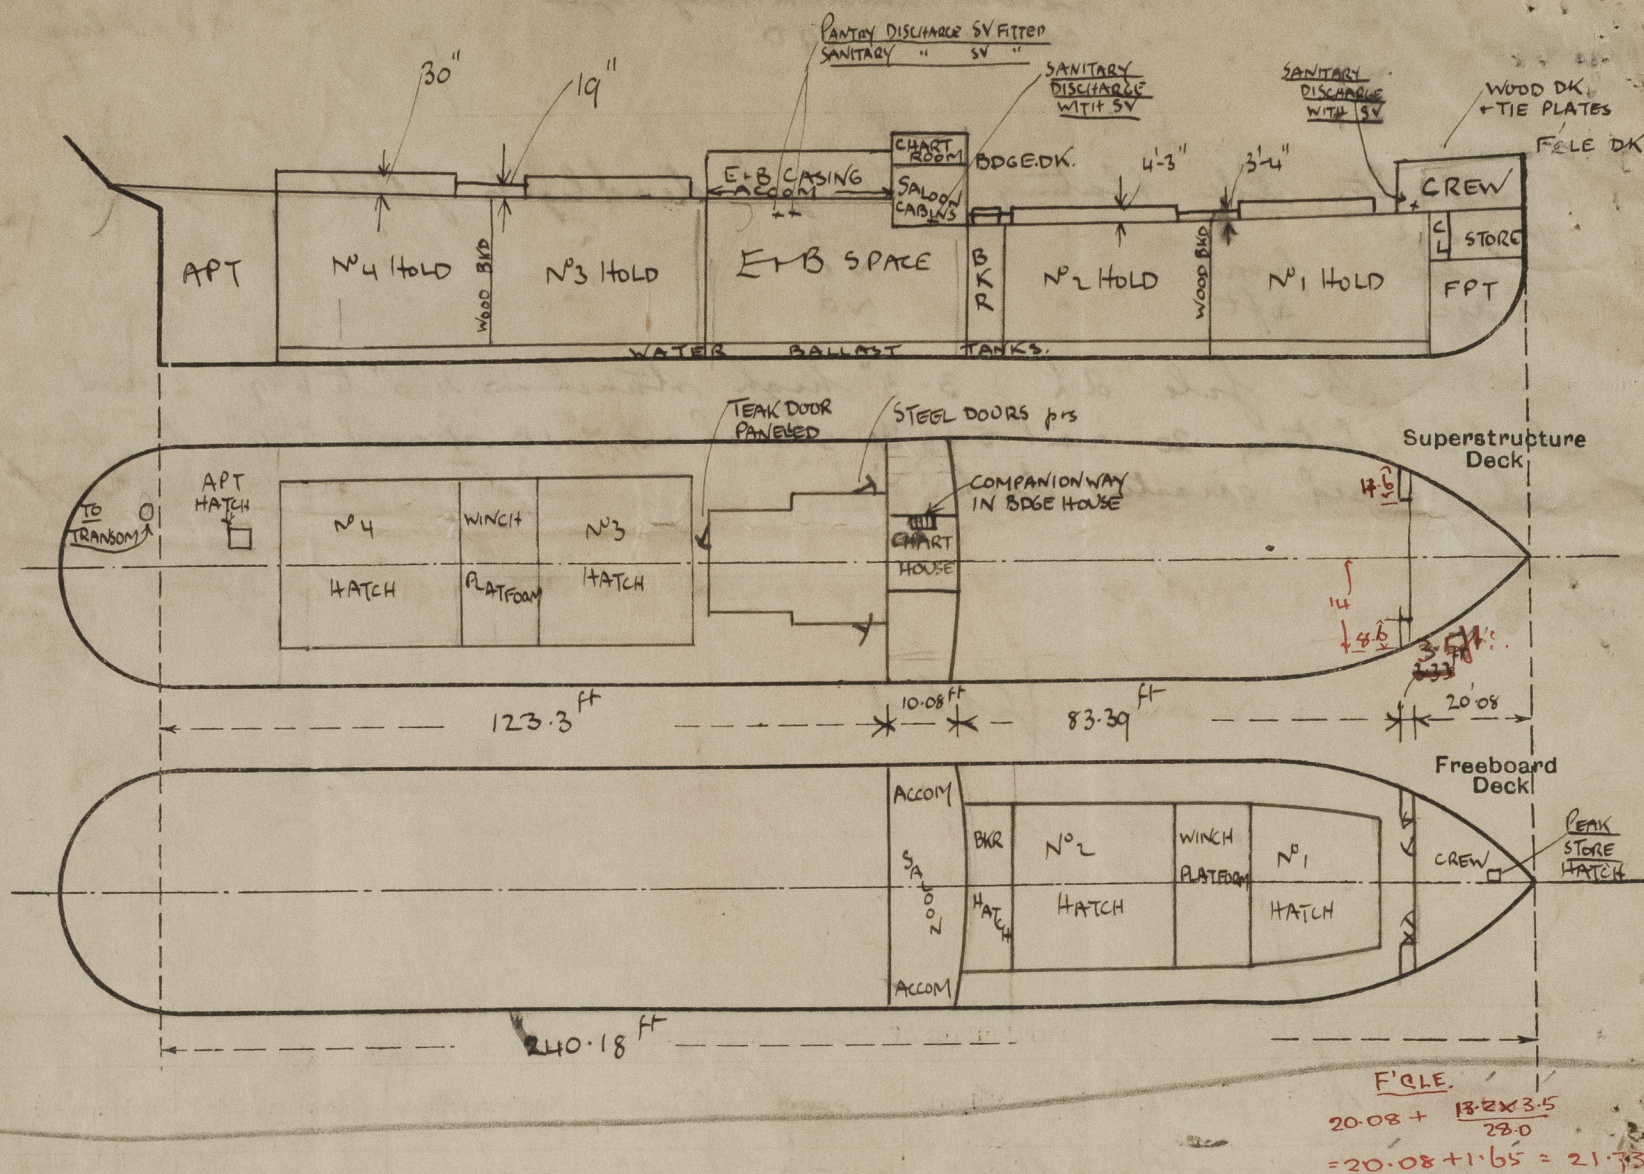 PANTRY DISCHARGE SV FITTED
SANITARY " SV "
30"
19"
SANITARY
DISCHARGE
WITH SV
SANITARY
DISCHARGE
WITH SV
WOOD DK
+ TIE PLATES
F'CLE DK
CHART
ROOM
BDGE.DK.
4'-3"
3'-4"
E+B CASING
ACCOM
SALOON
CABINS
CREW
APT
Nº4 HOLD
WOOD BKD
Nº3 HOLD
E+B SPACE
BKR
Nº2 HOLD
WOOD BKD
Nº1 HOLD
CL
STORE
FPT
WATER BALLAST TANKS.
TEAK DOOR
PANELED
STEEL DOORS prs
Superstructure
Deck
APT
HATCH
TO
TRANSOM
Nº4
HATCH
WINCH
PLATFORM
Nº3
HATCH
COMPANIONWAY
IN BDGE HOUSE
CHART
HOUSE
14
8.6
3.33
123.3 ft
10.08 ft
83.39 ft
20.08
Freeboard
Deck
ACCOM
SALOON
ACCOM
BKR
HATCH
Nº2
HATCH
WINCH
PLATFORM
Nº1
HATCH
CREW
PEAK
STORE
HATCH
240.18 ft
F'CLE.
20.08 + 13.2 x 3.5
28.0
= 20.08 + 1.65 = 21.73